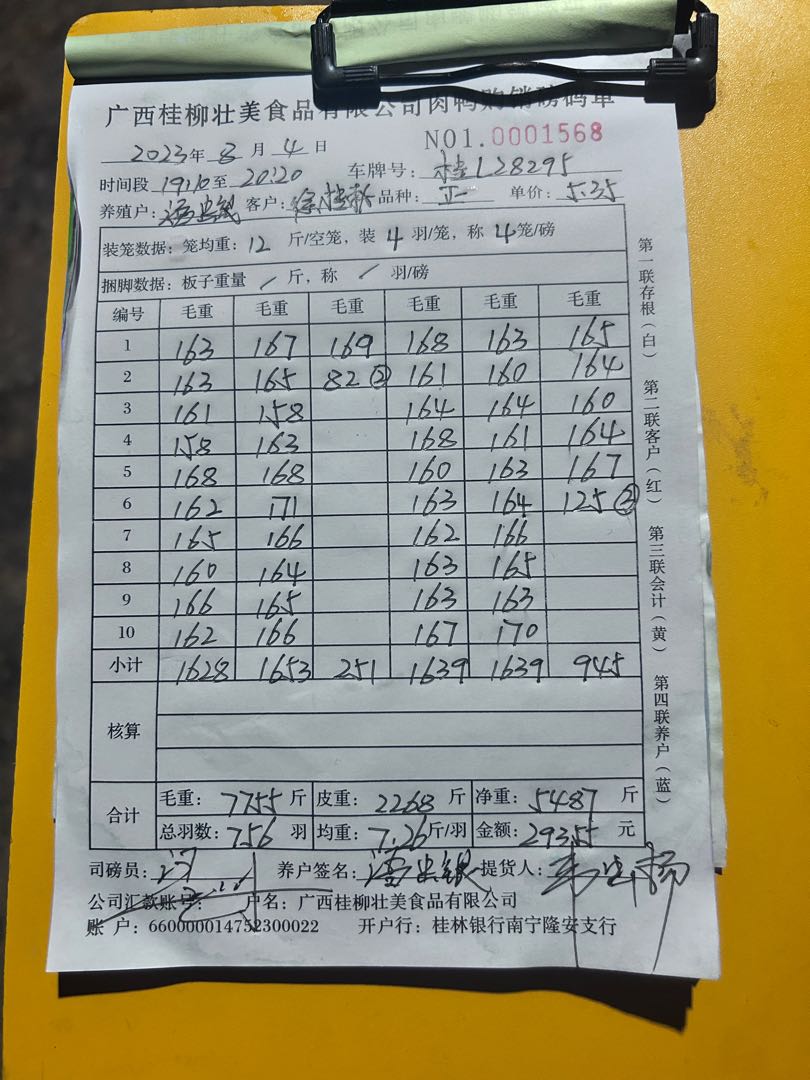 广西桂柳壮美食品有限公司肉鸭购销磅码单
NO1.0001568
2023年8月4日
车牌号：桂L28295
时间段 19:10至20:20
养殖户： 客户： 品种：正一 单价：5.35
装笼数据：笼均重：12斤/空笼，装4羽/笼，称4笼/磅
捆脚数据：板子重量/斤，称/羽/磅
编号 毛重 毛重 毛重 毛重 毛重 毛重
1 163 167 169 168 163 165
2 163 165 82② 161 160 164
3 161 158 164 164 160
4 158 163 168 161 164
5 168 168 160 163 167
6 162 171 163 164 125③
7 165 166 162 166
8 160 164 163 165
9 166 165 163 163
10 162 166 167 170
小计 1628 1653 251 1639 1639 945
核算
合计 毛重：7755斤 皮重：2268斤 净重：5487斤
总羽数：756羽 均重：7.26斤/羽 金额：29355元
司磅员： 养户签名： 提货人：
公司汇款账号： 户名：广西桂柳壮美食品有限公司
账 户：660000014752300022 开户行：桂林银行南宁隆安支行
第一联存根（白） 第二联客户（红） 第三联会计（黄） 第四联养户（蓝）